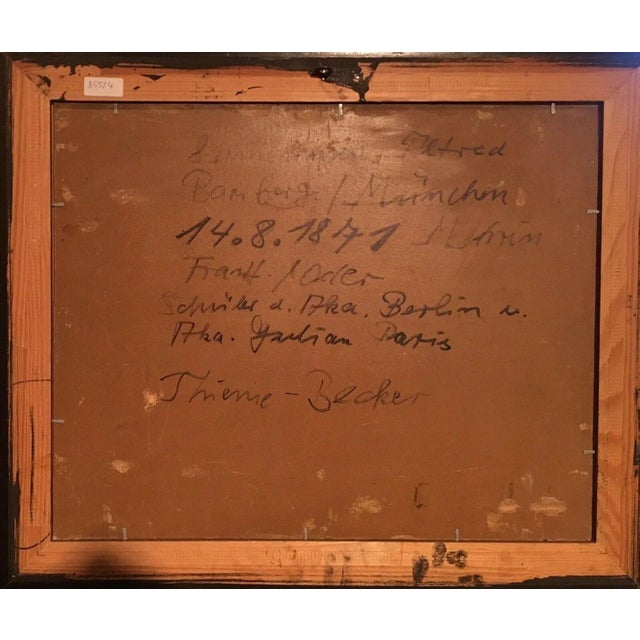 855/4
Alfred
Bamberg / München
14.8.1871
Frankf. / Oder
Schüler d. Aka. Berlin u.
Aka. Julian Paris
Thieme-Becker